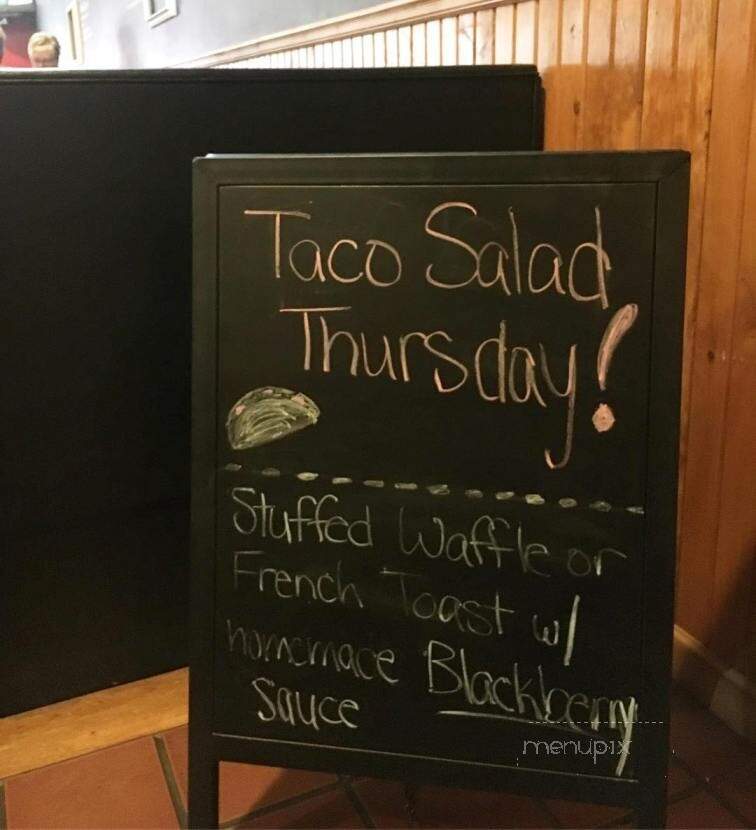 Taco Salad
Thursday!
Stuffed Waffle or
French Toast w/
homemade Blackberry
Sauce
menupix